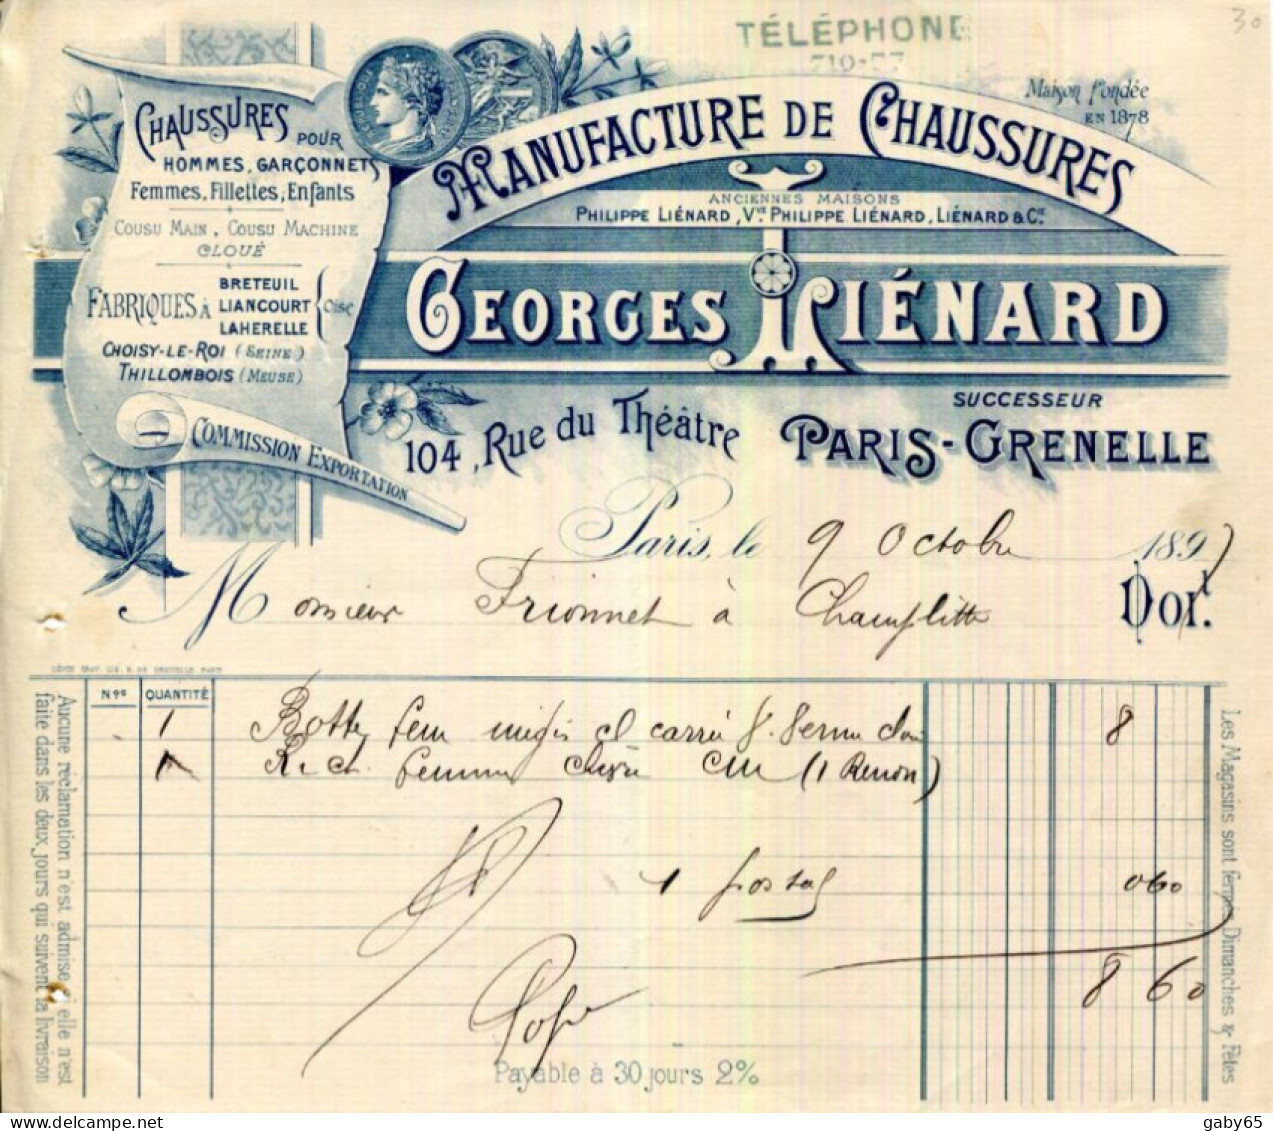 30
TÉLÉPHONE
CHAUSSURES POUR
HOMMES, GARÇONNETS
Femmes, Fillettes, Enfants
COUSU MAIN, COUSU MACHINE
CLOUÉ
FABRIQUES À
BRETEUIL
LIANCOURT
LAHERELLE
Oise
CHOISY-LE-ROI (SEINE)
THILLOMBOIS (MEUSE)
COMMISSION EXPORTATION
Maison fondée
EN 1878
MANUFACTURE DE CHAUSSURES
ANCIENNES MAISONS
PHILIPPE LIÉNARD, Vve PHILIPPE LIÉNARD, LIÉNARD & Cie
GEORGES LIÉNARD
SUCCESSEUR
104, RUE DU THÉÂTRE PARIS-GRENELLE
Paris, le 9 Octobre 1897
Monsieur Frionnet à Champlitte Doit.
Nos QUANTITÉ
1 fem carré 8
1 femme chèvre (1 Remon)
1 postal 060
8 60
Payable à 30 jours 2%
Aucune réclamation n'est admise si elle n'est
faite dans les deux jours qui suivent la livraison
Les Magasins sont fermés Dimanches & Fêtes
gaby65